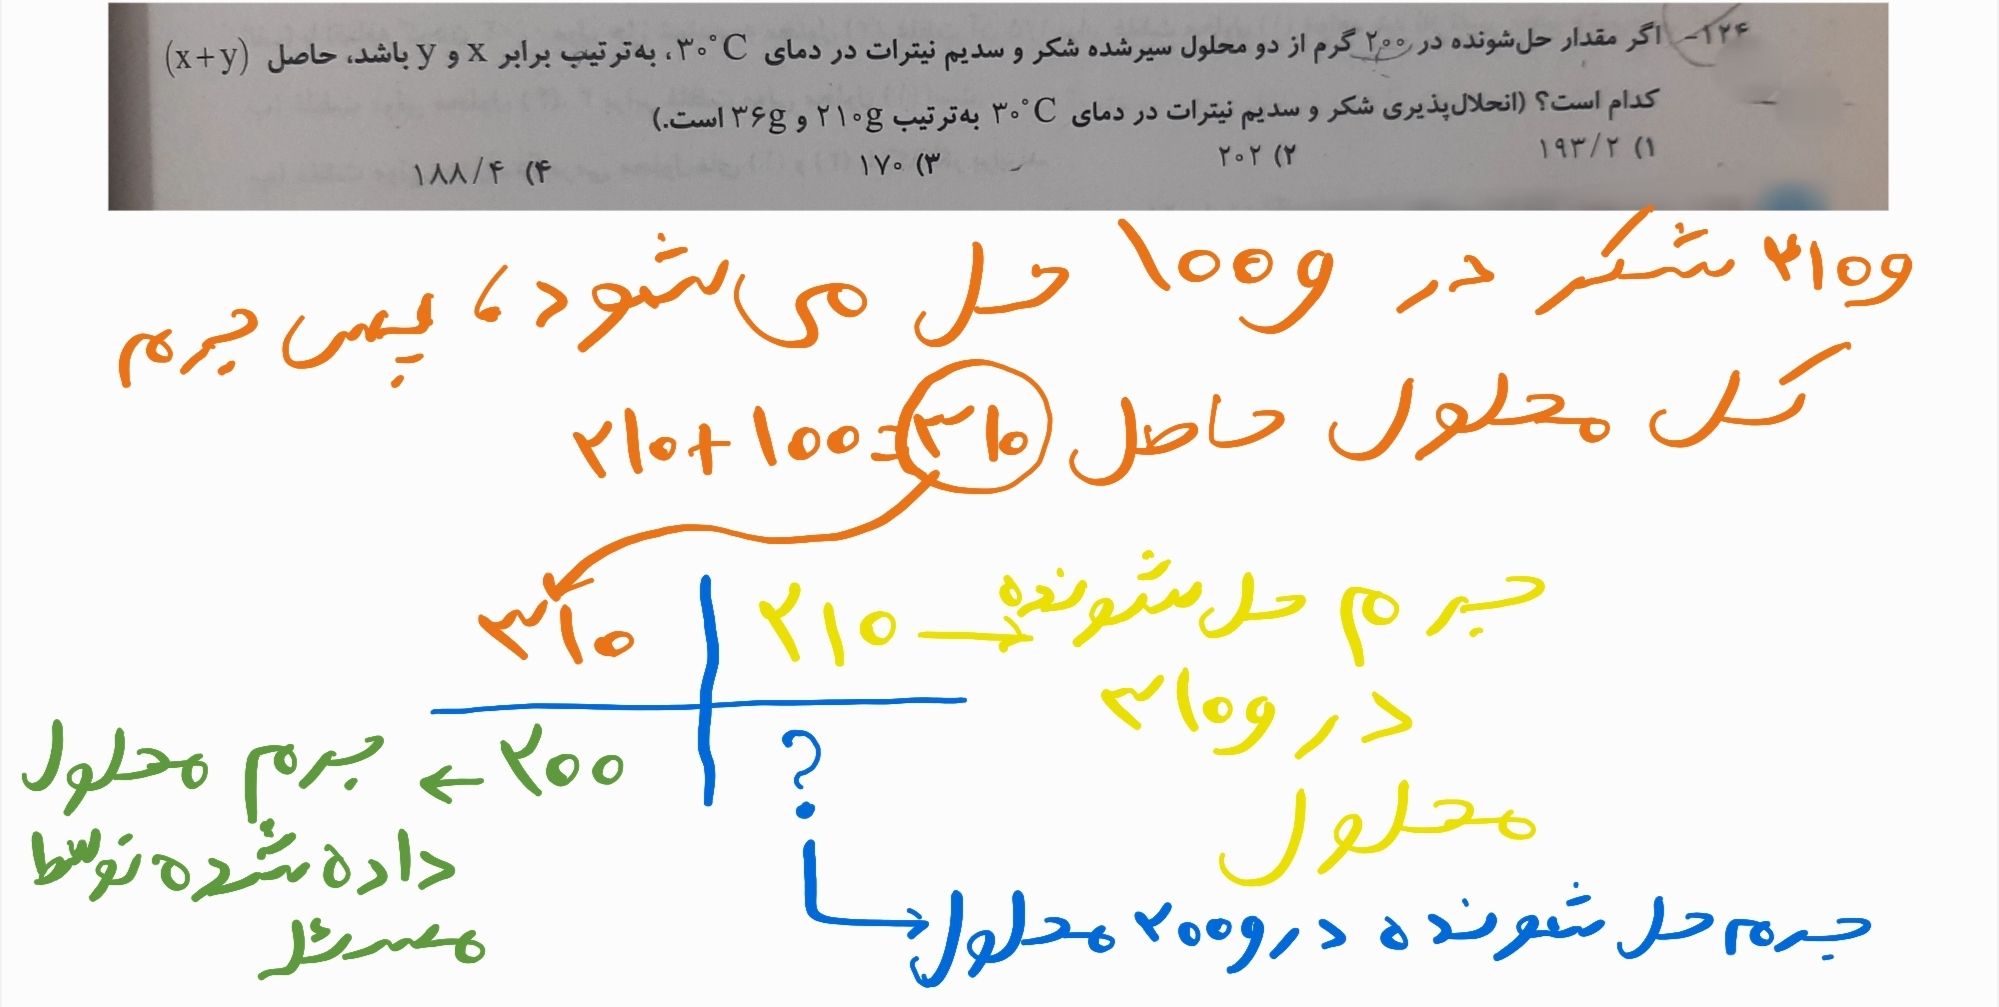 ۱۲۴- اگر مقدار حل‌شونده در ۲۰۰ گرم از دو محلول سیرشده شکر و سدیم نیترات در دمای ۳۰°C، به‌ترتیب برابر x و y باشد، حاصل (x+y)
کدام است؟ (انحلال‌پذیری شکر و سدیم نیترات در دمای ۳۰°C به‌ترتیب ۲۱۰g و ۳۶g است.)
۱) ۱۹۳/۲ ۲) ۲۰۲ ۳) ۱۷۰ ۴) ۱۸۸/۴
۲۱۰g شکر در ۱۰۰g حل می‌شود، پس جرم
کل محلول حاصل ۲۱۰+۱۰۰=۳۱۰
۳۱۰ ۲۱۰ → جرم حل شونده
در ۳۱۰g
محلول
۲۰۰ ← جرم محلول
داده شده توسط
مسئله
?
جرم حل شونده در ۲۰۰g محلول